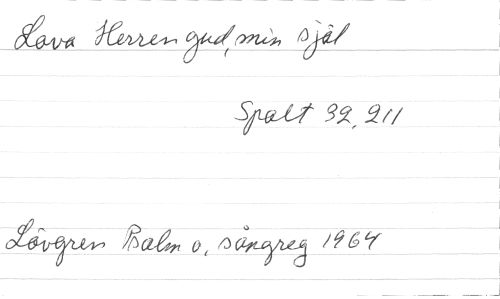 Lova Herren gud, min själ
Spalt 32, 211
Lövgren Psalm o, sångreg 1964